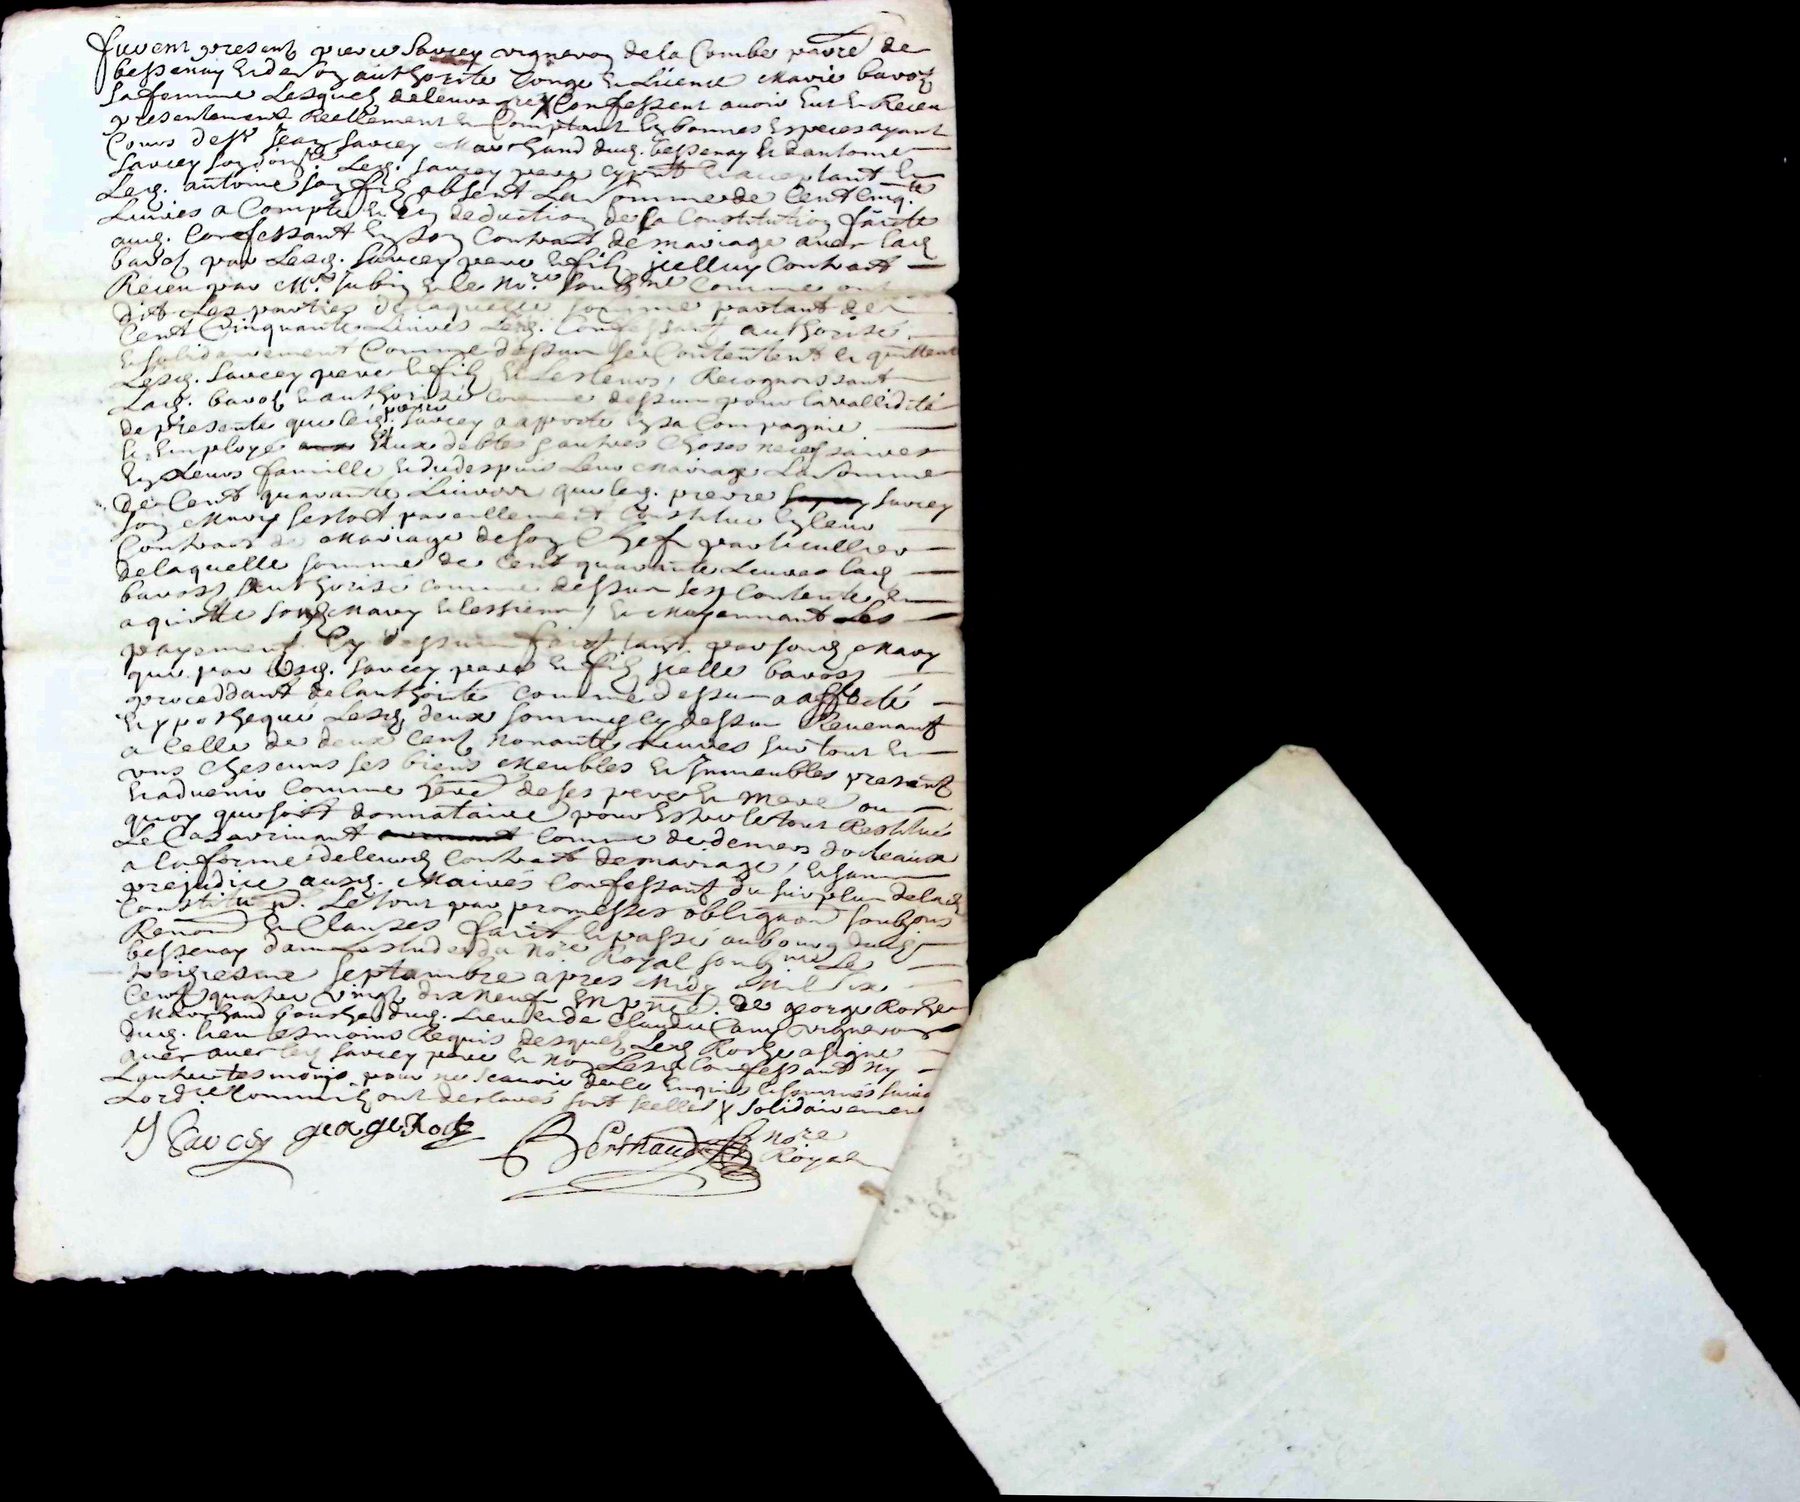 furent present pierre Savcey vigneron de la Combe parre de
bessenay et de son authorite Conge et Licence Marie bavoz
sa femme Lesquelz de leurs grez X Confessent avoir Eut et Receu
presentement Reellement et Comptant En bonnes Especes ayant
Cours de Sr Jean Savcey Marchand dud. bessenay et d'antoine
Savcey son Led. Savcey pere cy pnt et acceptant et
Led. antoine son filz absent La Somme de Cent Cinq.te
Livres a Compte et En deduction de la Constitution faicte
aud. Confessant En son Contract de mariage avec lad.
bavoz par Lesd. Savcey pere et filz jcelluy Contract
Receu par Me Jubin et le No.re soubz.né Comme ont
dit Les parties de laquelle somme partant de
Cent Cinquante Livres Lesd. Confessant authorisé
et solidairement Comme dessus se Contentent et quittent
Lesd. Savcey pere et filz et Les leurs, Recognoissant
Lad. bavoz et authorisé comme dessus pour la vallidité
de presente que led. pierre Savcey a apporté En sa Compagnie
et Employé Eux debtes & autres Choses necessaires
En Leurs famille et du despuis Leur Mariage La somme
De Cent quarante Livres que led. pierre Savcey
son Mary sestoit pareillement Constitué En leur
Contract de Mariage de son Chef particullier
de laquelle somme de Cent quarante Livres lad.
bavoz authorisé comme dessus sest Contente et
a quitté sond. Mary et les siens, et Moyennant Les
payement Cy dessus faict tant par sond. Mary
que par Lesd. Savcey pere et filz jcelle bavoz
proceddant de lauthorité comme dessus a affecté
et ypothequé Lesd. deux sommes Cy dessus Revenant
a Celle de deux Cent nonante Livres sur tout et
uns Chescuns ses biens Meubles et Immeubles present
et advenir Comme de ses pere et mere ou
quoy que soit donnataire pour Estre le tout Restitué
Le Cas arrivant Comme de deniers doteaux
a la forme de leurd. Contract de mariage, et sans
prejudice ausd. Mariés Confessant du surplus de lad.
Constituon. Le tout par promesses obligaon soubzons
Renonon et Clauses faict et passé au bourg dud.
bessenay dans Lestude du No.re Royal soubz.né Le
septambre apres Midy Mil Six
Cent quatre vingt dix Neuf En pnce. de George Roche
Marchand boucher dud. Lieu et de Claude Camy vigneron
dud. lieu tesmoins Requis desquelz Led. Roche a signé
avec Led. Savcey pere et non Lesd. Confessant ny
Lautre tesmoins pour ne Scavoir de ce Enquis et sommés suivant
Lord.ce Comme ilz ont declarés soit scelles X solidairement
J Savcey george Roche Berthaud No.re
Royal